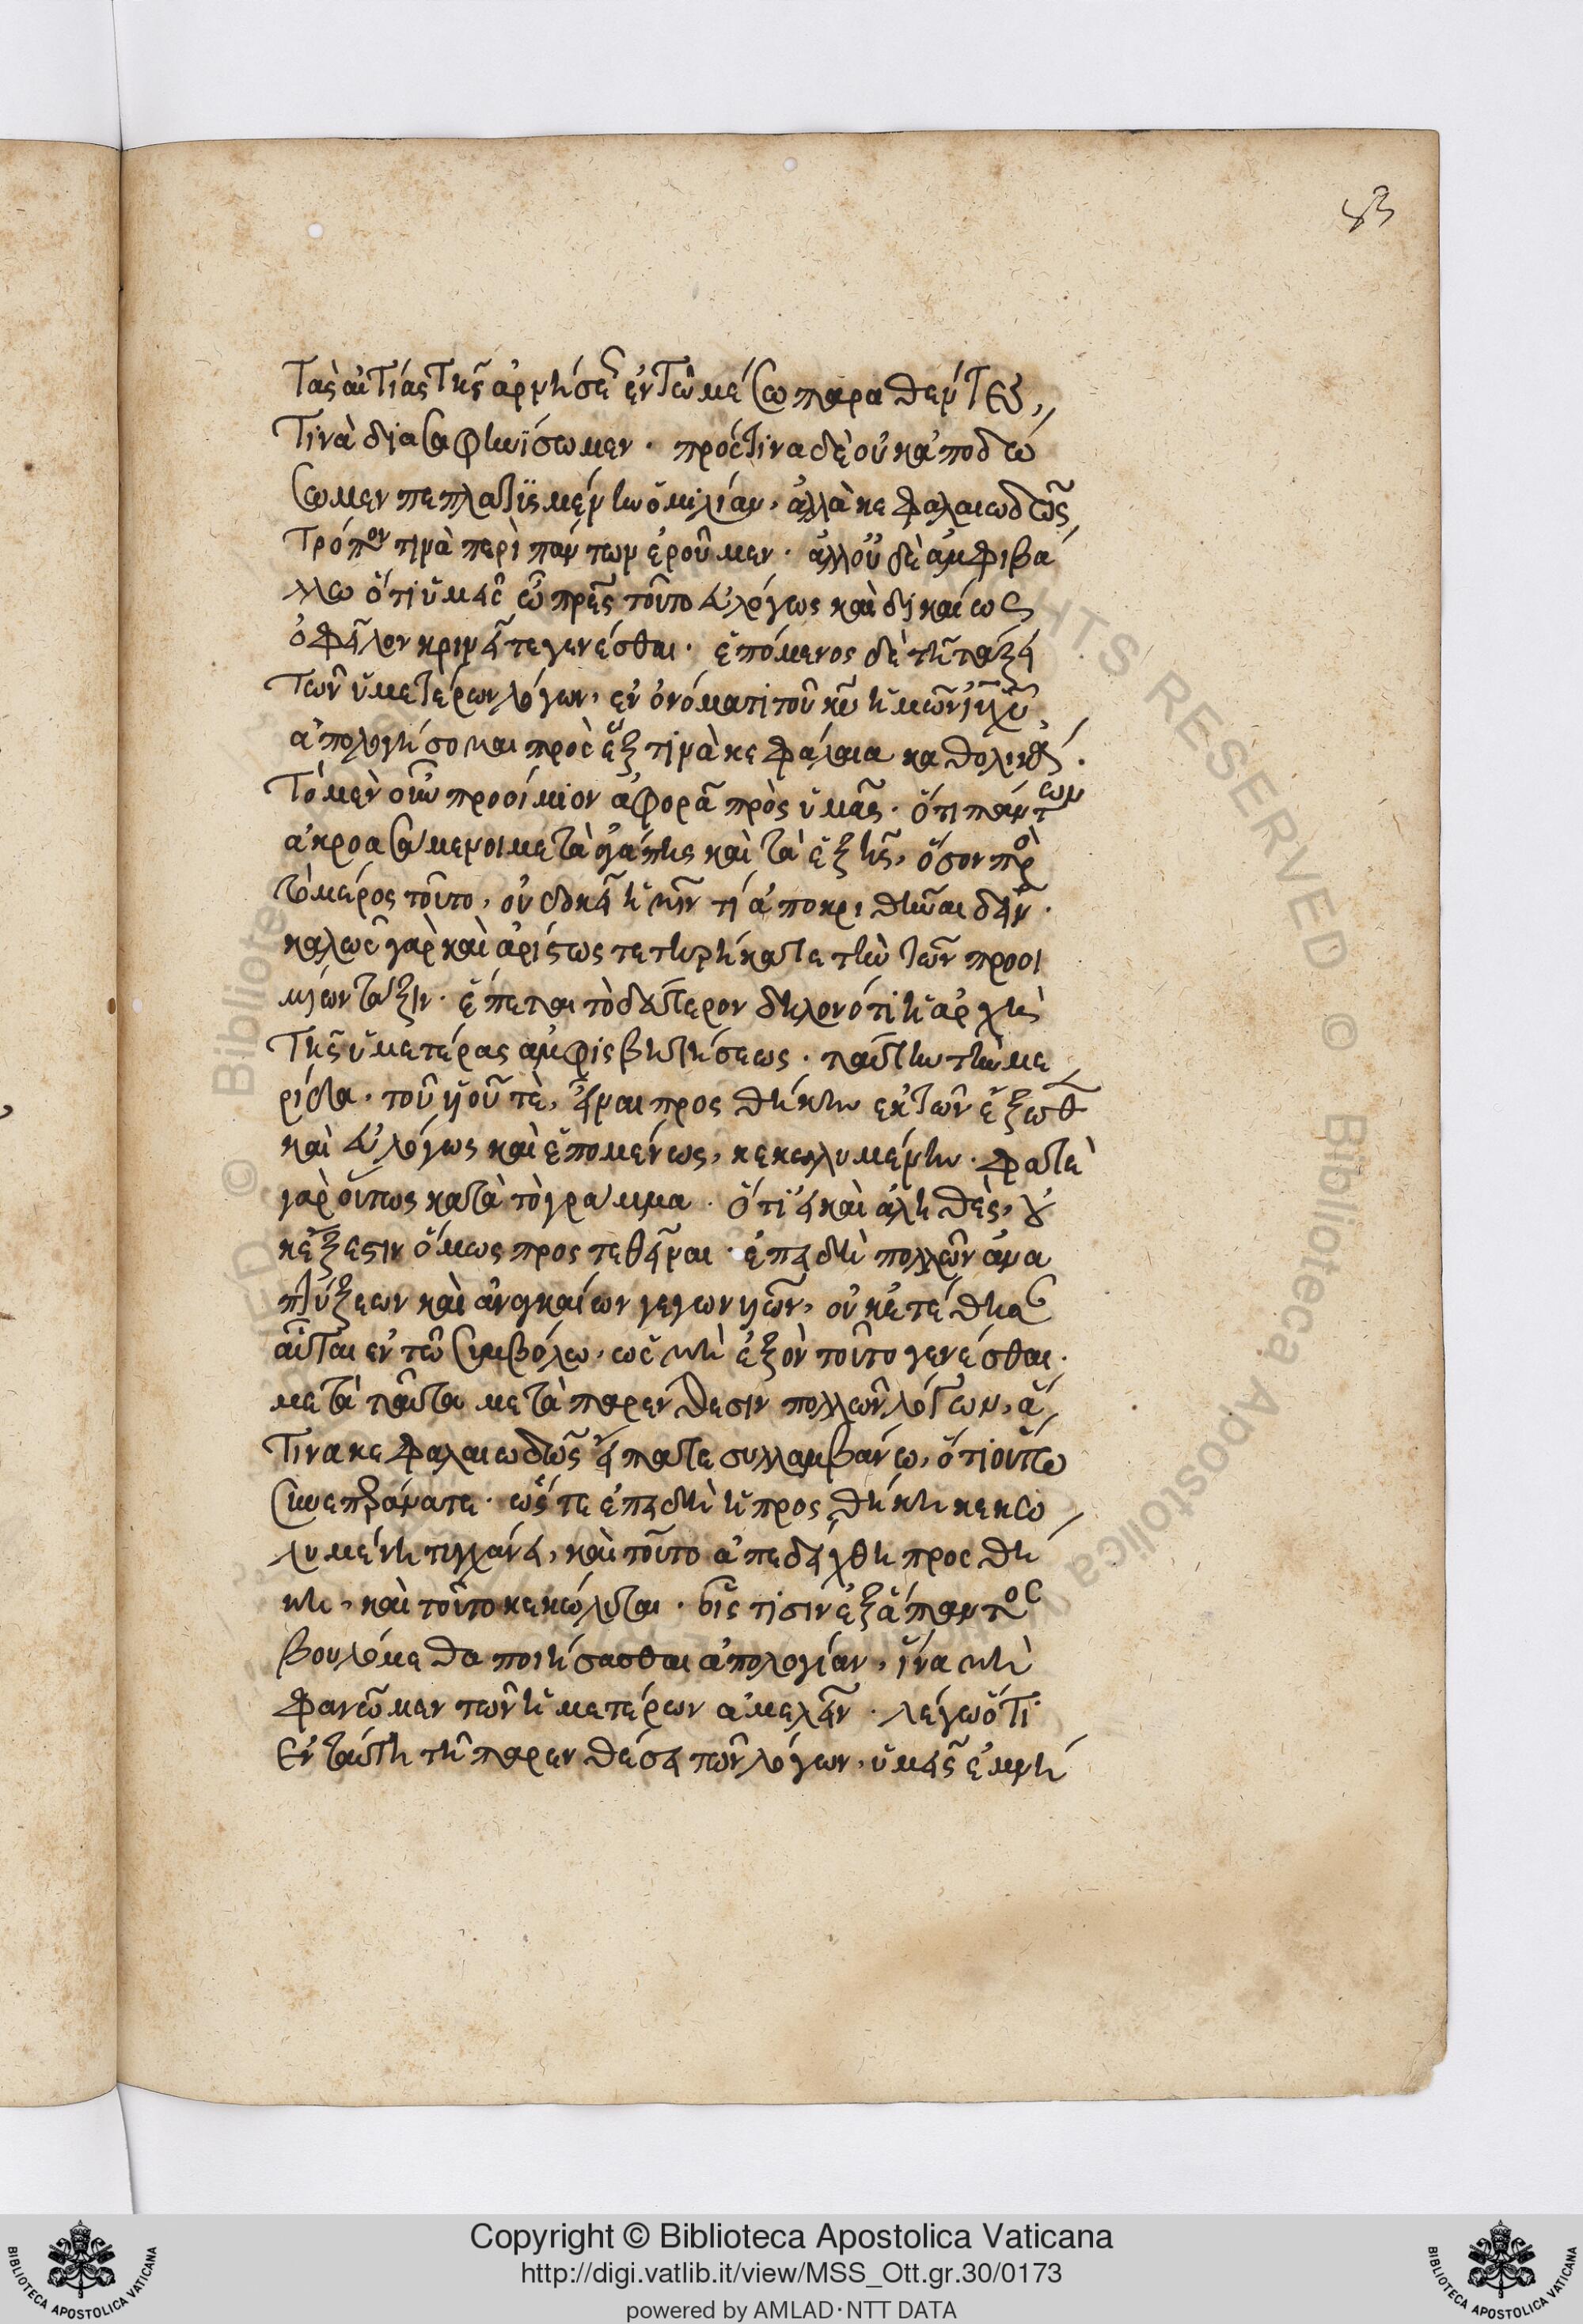 83
Τὰς αἰτίας τῆς ἀρνήσεως ἐν τῷ μέσω παραθέντες,
τινὰ διασαφηνίσωμεν. πρός τινα δὲ οὐκ ἀποδώ
σωμεν πεπλατυσμένην ὁμιλίαν, ἀλλὰ κεφαλαιωδῶς
τρόπον τινὰ περὶ πάντων ἐροῦμεν. ἀλλ' οὐδὲ ἀμφιβά
λλω ὅτι ὑμεῖς ὦ πρες τοῦτο εὐλόγως καὶ δικαίως
ὀφεῖλον κρινεῖτε γενέσθαι. ἑπόμενος δὲ τῆ τάξει
τῶν ὑμετέρων λόγων, ἐν ὀνόματι τοῦ κυ ἡμῶν ιυ χυ,
ἀπολογήσομαι πρὸς ἕξ τινὰ κεφάλαια καθολικῶς.
Τὸ μὲν οὖν προοίμιον ἀφορᾶ πρὸς ὑμᾶς. ὅτι πάντων
ἀκροασάμενοι μετὰ ἀγάπης καὶ τὰ ἑξῆς, ὅσον πρὸς
τὸ μέρος τοῦτο, οὐ δοκεῖ ἡμῖν τί ἀποκριθῆναι δεῖν.
καλῶς γὰρ καὶ ἀρίστως τετηρήκατε τὴν τῶν προοι
μίων τάξιν. ἕπεται τὸ δεύτερον δηλονότι ἡ ἀρχὴ
τῆς ὑμετέρας ἀμφισβητήσεως. ταύτην τὴν με
ρίδα. τοῦ υἱοῦ τὲ, εἶναι προσθήκην ἐκ τῶν ἔξωθεν
καὶ εὐλόγως καὶ ἑπομένως, κεκωλυμένην. φατὲ
γὰρ οὕτως κατὰ τὸ γράμμα. ὅτι εἰ καὶ ἀληθὲς, οὐ
κ ἔξεστιν ὅμως προστεθεῖναι. ἐπειδὴ πολλῶν ἀνα
πτύξεων καὶ ἀναγκαίων γεγονυιῶν, οὐκ ἐτέθησαν
αὗται ἐν τῶ συμβόλω. ὡς μὴ ἐξὸν τοῦτο γενέσθαι.
μετὰ ταῦτα μετὰ παρένθεσιν πολλῶν λόγων, ἅ
τινα κεφαλαιωδῶς εἴπατε συλλαμβάνω, ὅτι οὕτω
συνεπεράνατε. ὥστε ἐπειδὴ ἡ προσθήκη κεκω
λυμένη τυγχάνει, καὶ τοῦτο ἀπεδείχθη προσθή
κη, καὶ τοῦτο κεκώλυται. οἷς τισιν ἐξ ἅπαντος
βουλόμεθα ποιήσασθαι ἀπολογίαν, ἵνα μὴ
φανῶμεν τῶν ἡμετέρων ἀμελεῖν. λέγω ὅτι
ἐν ταύτη τῆ παρενθέσει τῶν λόγων, ὑμεῖς ἐμνή
Copyright © Biblioteca Apostolica Vaticana
http://digi.vatlib.it/view/MSS_Ott.gr.30/0173
powered by AMLAD·NTT DATA